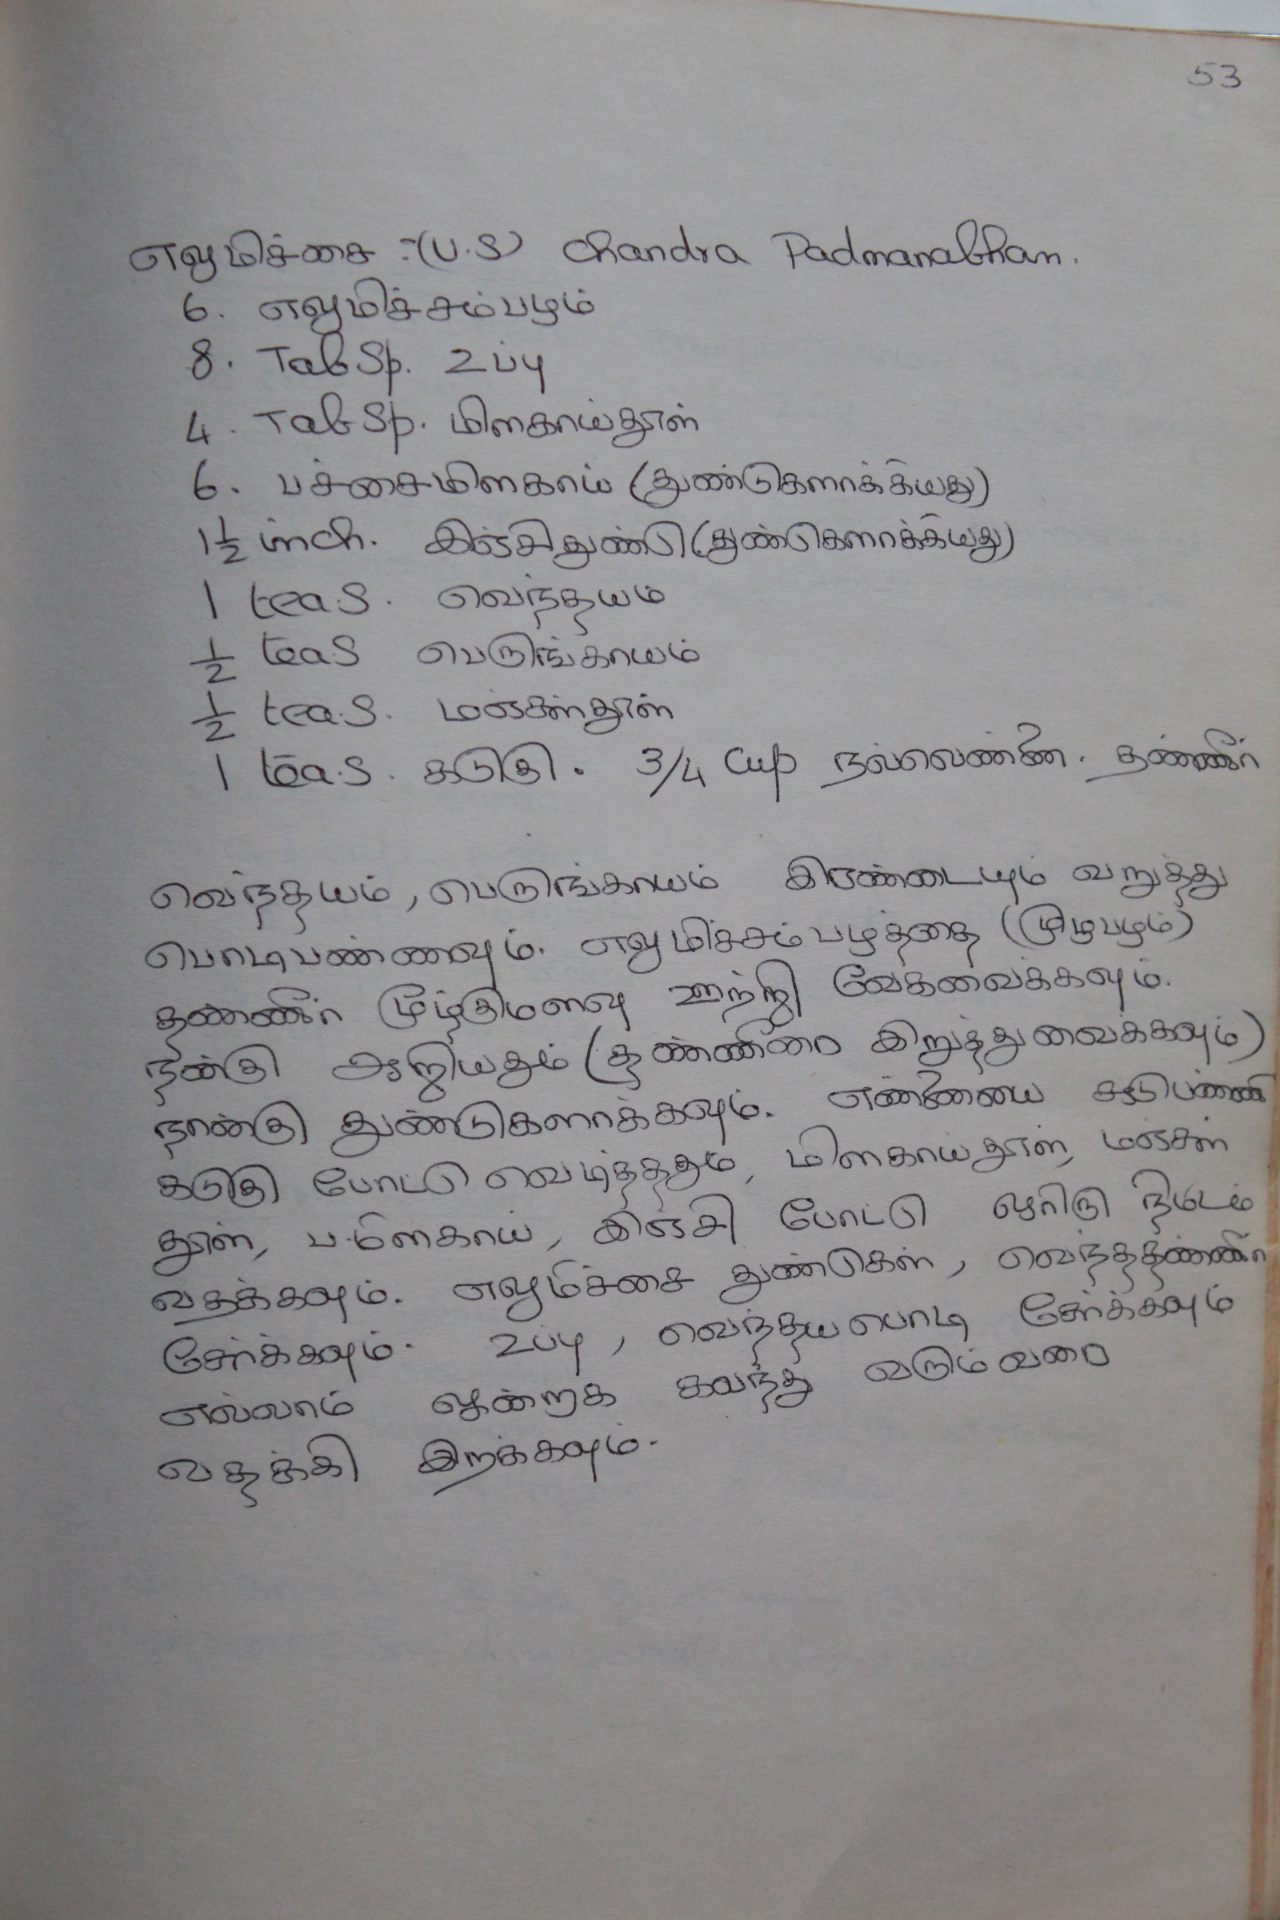 53
எலுமிச்சை :-(U.S) Chandra Padmanabhan.
6. எலுமிச்சம்பழம்
8. TabSp. உப்பு
4. TabSp. மிளகாய்தூள்
6. பச்சைமிளகாய் (துண்டுகளாக்கியது)
1½ inch. இஞ்சிதுண்டு (துண்டுகளாக்கியது)
1 tea.S. வெந்தயம்
½ teaS பெருங்காயம்
½ tea.S. மஞ்சள்தூள்
1 tea.S. கடுகு. 3/4 Cup நல்லெண்ணை. தண்ணீர்
வெந்தயம், பெருங்காயம் இரண்டையும் வறுத்து
பொடிபண்ணவும். எலுமிச்சம்பழத்தை (முழுபழம்)
தண்ணீர் மூழ்குமளவு ஊற்றி வேகவைக்கவும்.
நன்கு ஆறியதும் (தண்ணீரை இறுத்துவைக்கவும்)
நான்கு துண்டுகளாக்கவும். எண்ணையை சூடுபண்ணி
கடுகு போட்டு வெடித்ததும், மிளகாய்தூள், மஞ்சள்
தூள், ப.மிளகாய், இஞ்சி போட்டு ஓரிரு நிமிடம்
வதக்கவும். எலுமிச்சை துண்டுகள், வெந்ததண்ணீர்
சேர்க்கவும். உப்பு, வெந்தயபொடி சேர்க்கவும்
எல்லாம் ஒன்றாக கலந்து வரும்வரை
வதக்கி இறக்கவும்.